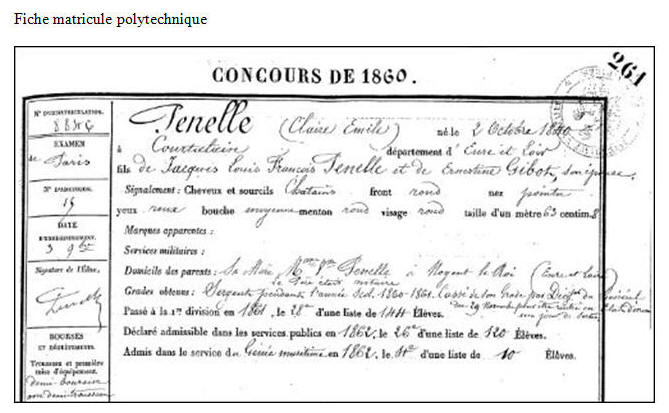 Fiche matricule polytechnique
261
CONCOURS DE 1860.
N° D'IMMATRICULATION.
8846
EXAMEN
de Paris
N° D'ADMISSION.
15
DATE
D'ENREGISTREMENT.
3 9bre
Signature de l'Élève.
BOURSES
ET DÉGRÈVEMENTS.
Trousseau et première
mise d'équipement.
demi-bourse
avec demi trousseau
Penelle (Claire Emile) né le 2 Octobre 1840
à département d'Eure et Loir
fils de Jacques Louis François Penelle et de Ernestine Gibot, son épouse
Signalement : Cheveux et sourcils Chatains front rond nez pointu
yeux roux bouche moyenne menton rond visage rond taille d'un mètre 63 centim. 8
Marques apparentes :
Services militaires :
Domicile des parents : Sa Mère, Mme Vve Penelle à Nogent le Roi (Eure et Loir)
le Père était notaire
Grades obtenus : Sergent pendant l'année Scol. 1860-1861. Cassé de son Grade par du Général
Passé à la 1re division en 1861, le 28e d'une liste de 144 Élèves.
un jour de Sortie
Déclaré admissible dans les services publics en 1862, le 26e d'une liste de 120 Élèves.
Admis dans le service du Génie maritime en 1862, le 4e d'une liste de 10 Élèves.